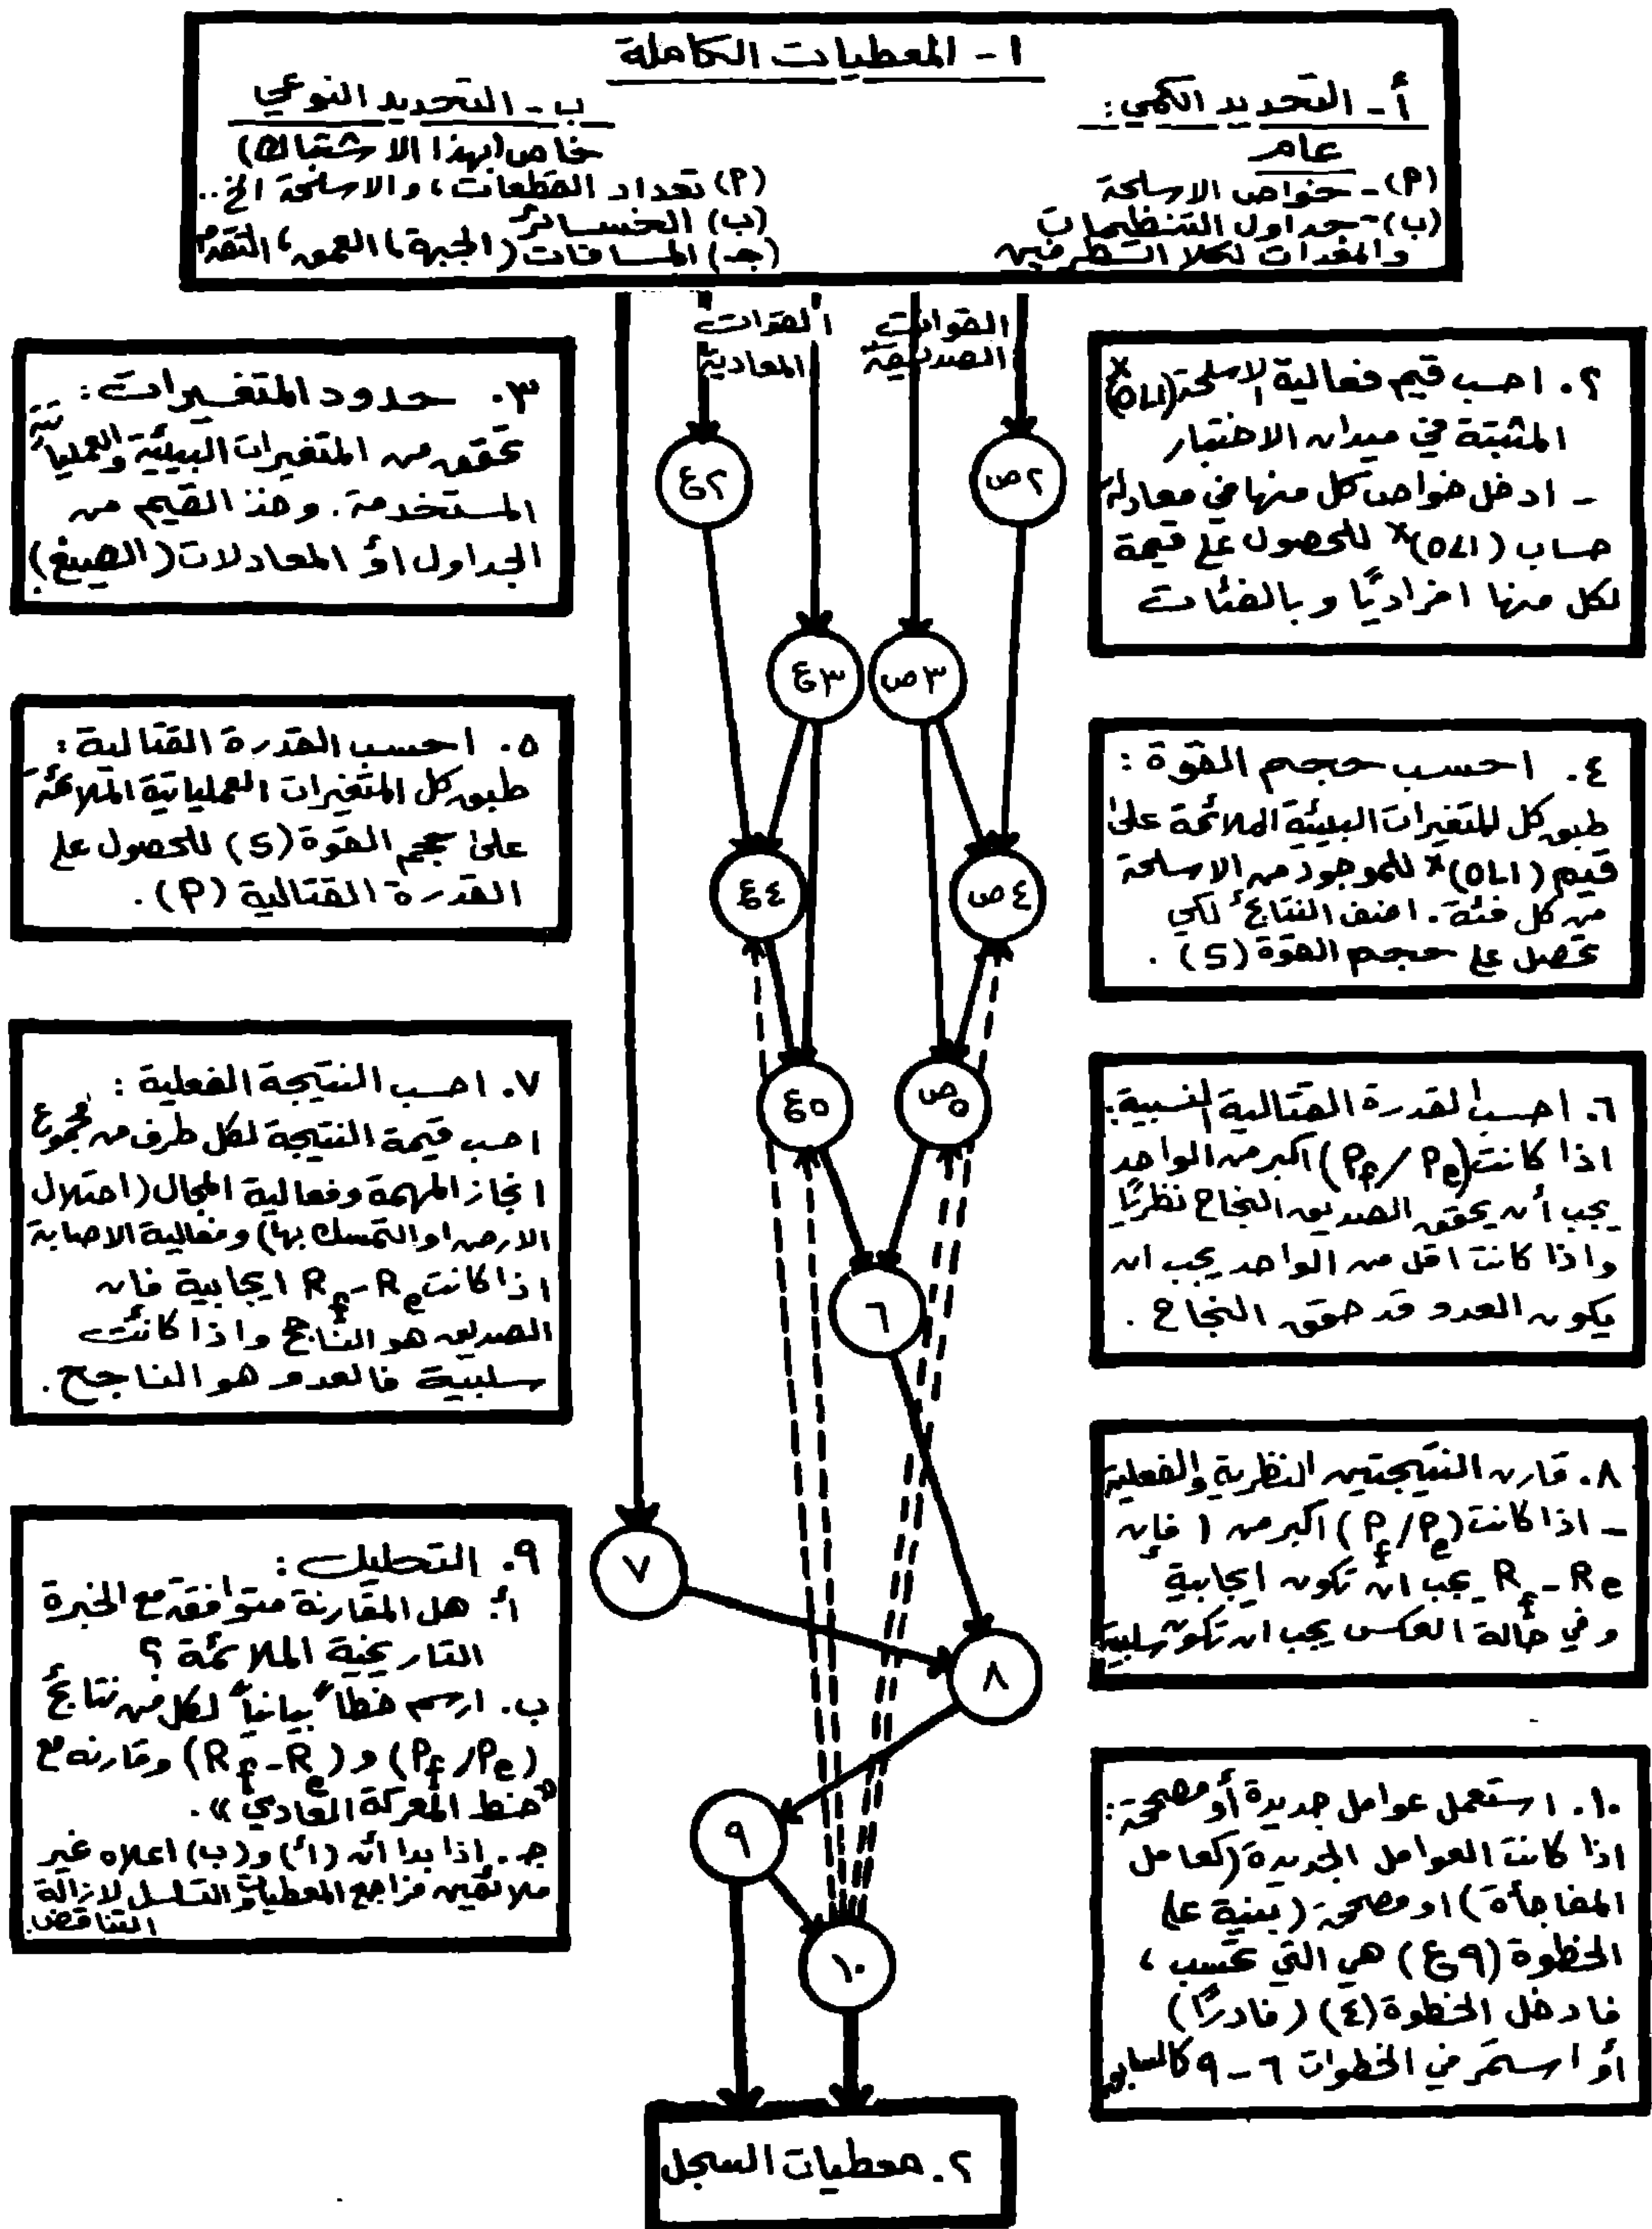 ١ - المعطيات الكاملة
أ - التحديد الكمي:
عام
(٩) - خواص الاسلحة
(ب) - جداول التنظيمات
والمعدات لكلا الطرفين
ب - التحديد النوعي
خاص (بهذا الاشتباك)
(٩) تعداد القطعات، والاسلحة الخ..
(ب) الخسائر
(جـ) المسافات (الجبهة، العمق، التقدم
القوات
الصديقة
القوات
المعادية
٢. احسب قيم فعالية الاسلحة (OLI)*
المثبتة في ميدان الاختبار
- ادخل خواص كل منها في معادلة
حساب (OLI)* للحصول على قيمة
لكل منها افراديًا وبالفئات
٣. حدود المتغيرات:
تحقق من المتغيرات البيئية والعملياتية
المستخدمة. وخذ القيم من
الجداول او المعادلات (الصيغ)
٤. احسب حجم القوة:
طبق كل المتغيرات البيئية الملائمة على
قيم (OLI)* للموجود من الاسلحة
من كل فئة. اضف النتائج لكي
تحصل على حجم القوة (S).
٥. احسب القدرة القتالية:
طبق كل المتغيرات العملياتية الملائمة
على حجم القوة (S) للحصول على
القدرة القتالية (P).
٦. احسب القدرة القتالية النسبية:
اذا كانت (Pf/Pe) اكبر من الواحد
يجب أن يحقق الصديق النجاح نظريًا
واذا كانت اقل من الواحد يجب ان
يكون العدو قد حقق النجاح.
٧. احسب النتيجة الفعلية:
احسب قيمة النتيجة لكل طرف من مجموع
انجاز المهمة وفعالية المجال (احتلال
الارض او التمسك بها) وفعالية الاصابة
اذا كانت Rf-Re ايجابية فان
الصديق هو الناجح واذا كانت
سلبية فالعدو هو الناجح.
٨. قارن النتيجتين النظرية والفعلية
- اذا كانت (Pf/Pe) اكبر من ١ فإن
Rf-Re يجب ان تكون ايجابية
وفي حالة العكس يجب ان تكون سلبية
٩. التحليل:
أ. هل المقارنة متوافقة مع الخبرة
التاريخية الملائمة؟
ب. ارسم خطاً بيانياً لكل من نتائج
(Pf/Pe) و (Rf-Re) وقارنه مع
«خط المعركة العادي».
جـ. اذا بدا ان (أ) و(ب) اعلاه غير
ملائمين فراجع المعطيات والتسلسل لازالة
التناقض.
١٠. استعمل عوامل جديدة أو مصححة:
اذا كانت العوامل الجديدة (كعامل
المفاجأة) او مصححة (بنية على
الخطوة (٩ع) هي التي تحسب،
فادخل الخطوة (٤) (نادرًا)
أو استمر في الخطوات ٦-٩ كالسابق
٢ع
٢ص
٣ع
٣ص
٤ع
٤ص
٥ع
٥ص
٦
٧
٨
٩
١٠
٢. معطيات السجل